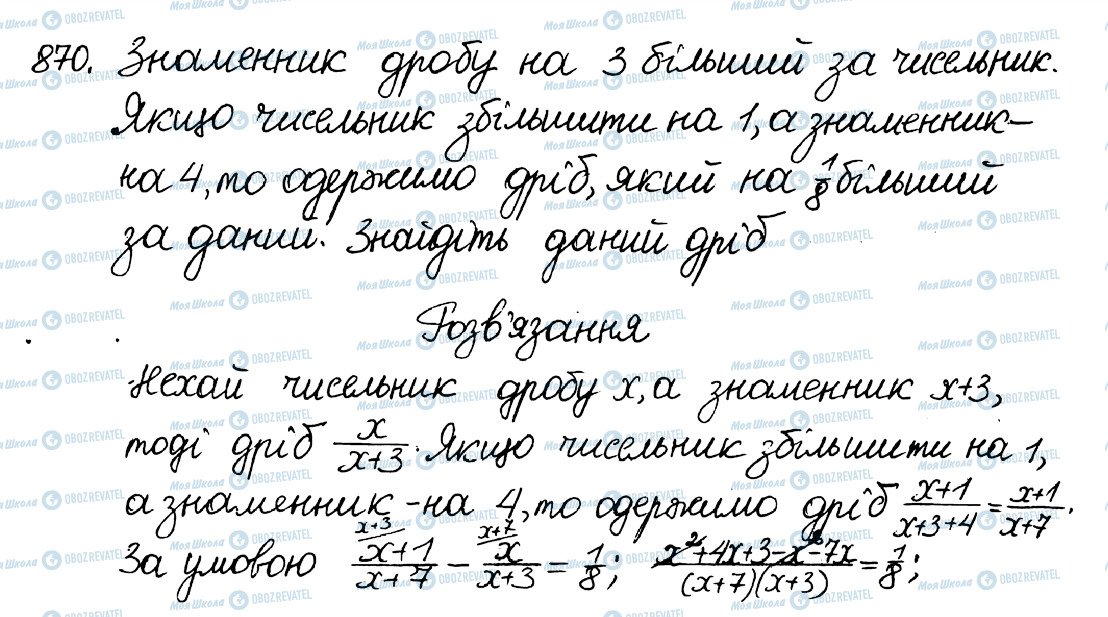 870. Знаменник дробу на 3 більший за чисельник.
Якщо чисельник збільшити на 1, а знаменник –
на 4, то одержимо дріб, який на 1/8 більший
за даний. Знайдіть даний дріб
Розв'язання
Нехай чисельник дробу x, а знаменник x+3,
тоді дріб x/(x+3). Якщо чисельник збільшити на 1,
а знаменник - на 4, то одержимо дріб (x+1)/(x+3+4) = (x+1)/(x+7).
За умовою x+3 (x+1)/(x+7) - x+7 x/(x+3) = 1/8; (x²+4x+3-x²-7x)/((x+7)(x+3)) = 1/8;
МояШкола OBOZREVATEL